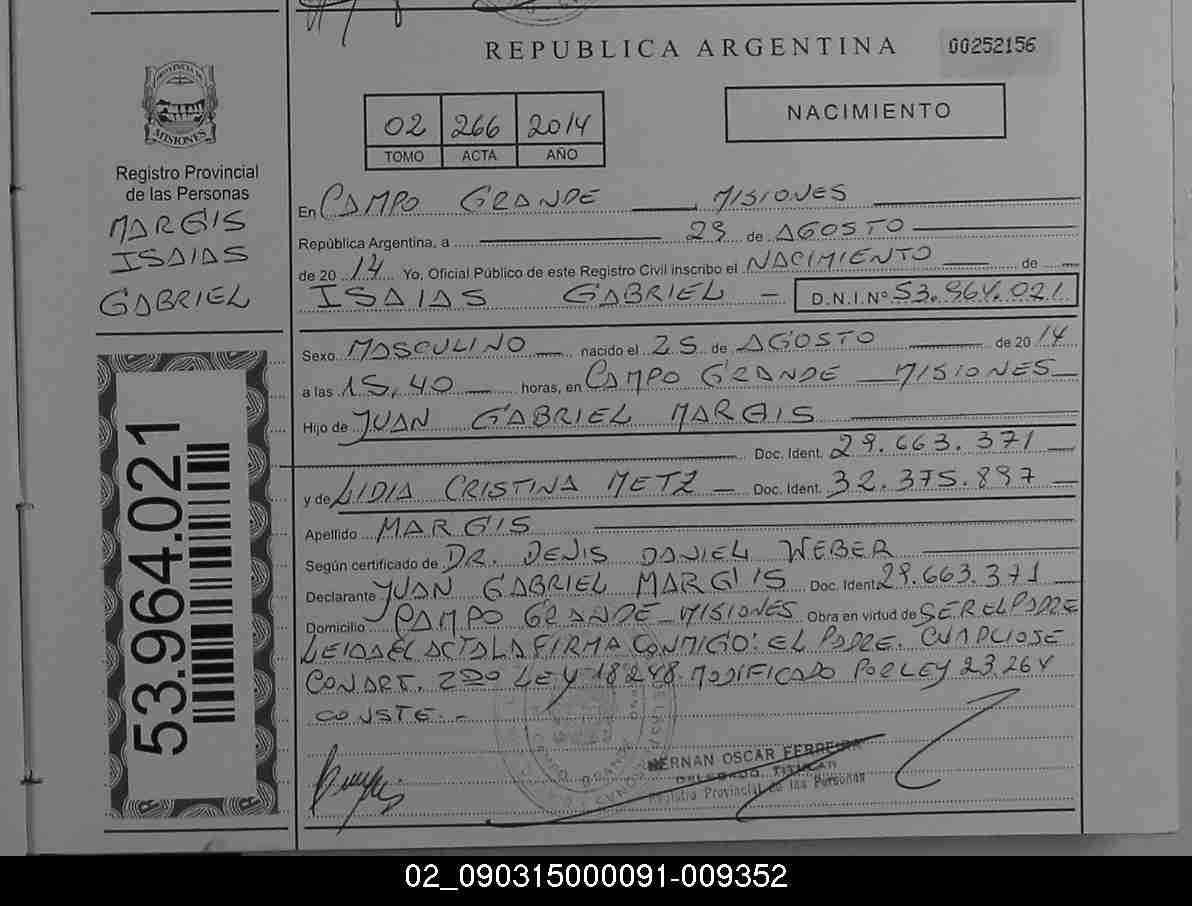 REPUBLICA ARGENTINA
00252156
PROVINCIA DE
MISIONES
Registro Provincial
de las Personas
MARGIS
ISAIAS
GABRIEL
53.964.021
02 266 2014
TOMO ACTA AÑO
NACIMIENTO
En CAMPO GRANDE MISIONES
República Argentina, a 29 de AGOSTO
de 2014 Yo, Oficial Público de este Registro Civil inscribo el NACIMIENTO de
ISAIAS GABRIEL - D.N.I.Nº 53.964.021
Sexo MASCULINO nacido el 25 de AGOSTO de 2014
a las 15,40 horas, en CAMPO GRANDE MISIONES
Hijo de JUAN GABRIEL MARGIS
Doc. Ident. 29.663.371
y de LIDIA CRISTINA METZ - Doc. Ident. 32.375.897
Apellido MARGIS
Según certificado de DR. DENIS DANIEL WEBER
Declarante JUAN GABRIEL MARGIS Doc. Ident. 29.663.371
Domicilio CAMPO GRANDE - MISIONES Obra en virtud de SER EL PADRE
LEIDA EL ACTA LA FIRMA CONMIGO: EL PADRE. CUMPLIOSE
CON ART. 2DO LEY 18248. MODIFICADO POR LEY 23.264
CONSTE. -
HERNAN OSCAR FERREIRA
DELEGADO TITULAR
Registro Provincial de las Personas
02_090315000091-009352